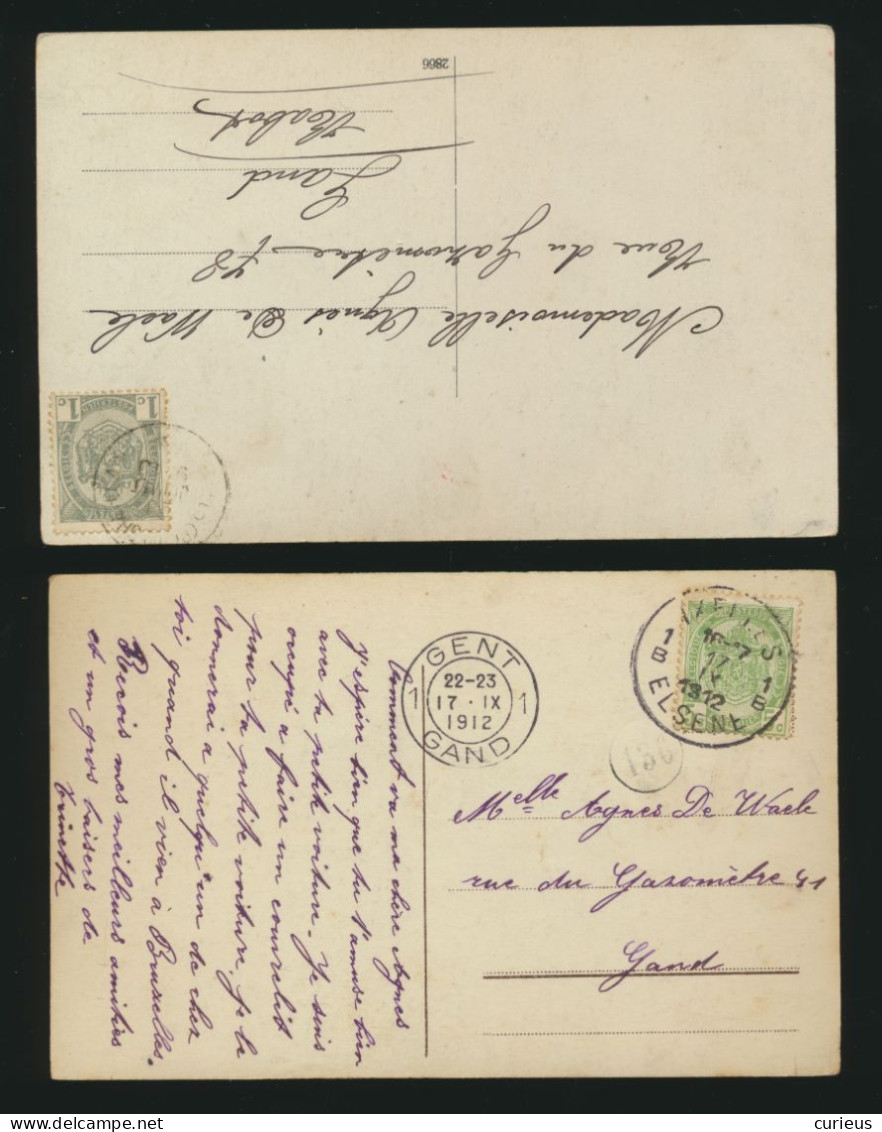 2866
Mademoiselle Agnès De Waele
Rue du Gazomètre 78
Gand
Rabot
1c 1c
Comment va ma chère Agnes
j'espère bien que tu t'amuse bien
avec ta petite voiture. Je suis
occupé a faire un couvrelit
pour ta petite voiture. Je le
donnerai a quelqu'un de chez
toi quand il vien à Bruxelles.
Recois mes meilleurs amitiés
et un gros baisers de
Trinette
GENT
22-23
1 17·IX 1
1912
GAND
IXELLES
16-17
1 17 1
B IX B
1912
ELSENE
156
Melle Agnes De Waele
rue du Gazomètre 41
Gand
delcampe.net
curieus